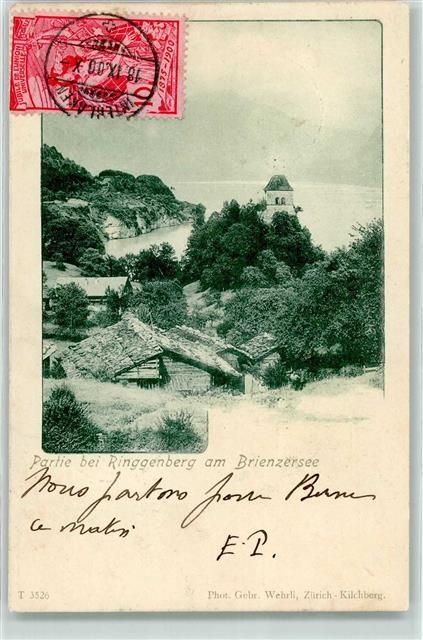 INTERLAKEN
18.IX.00.X
Partie bei Ringgenberg am Brienzersee
Nous partons pour Berne
ce matin
E.P.
T 3526
Phot. Gebr. Wehrli, Zürich-Kilchberg.